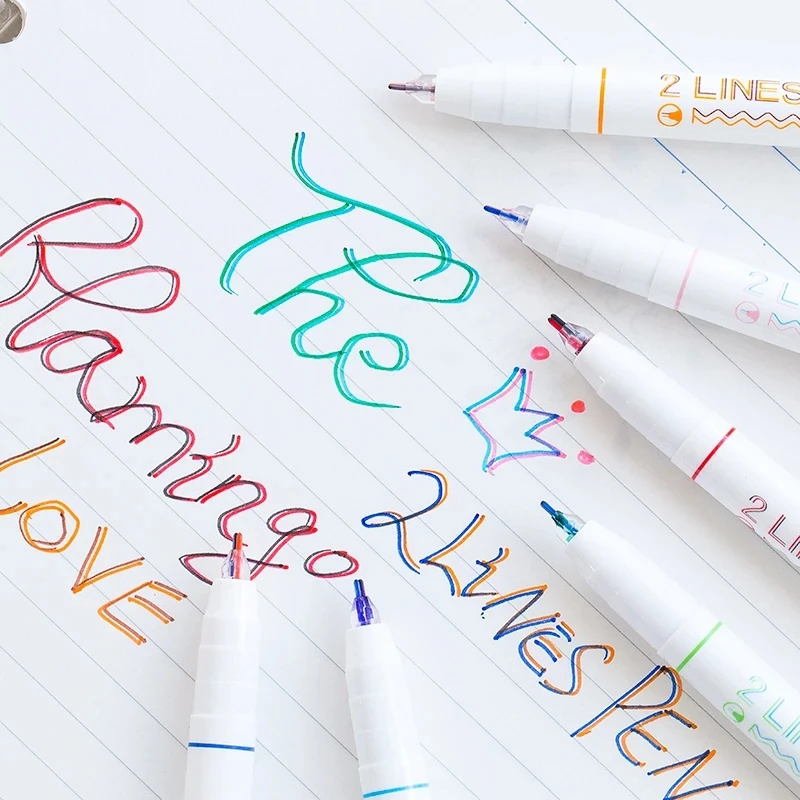 The
Flamingo
LOVE
2 LiNES PEN
2 LINES
2 L
2 LI
2 LI